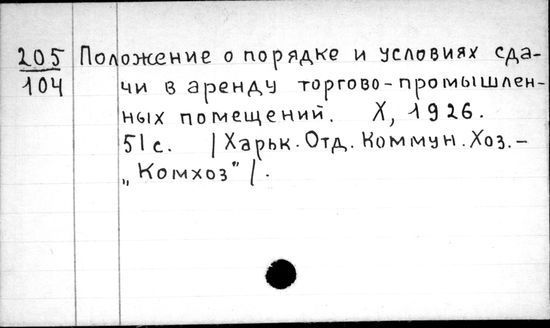 205 Положение о порядке и условиях сда-
104 чи в аренду торгово-промышлен-
ных помещений. Х, 1926.
51с. /Харьк. Отд. Коммун. Хоз.-
„Комхоз"/.